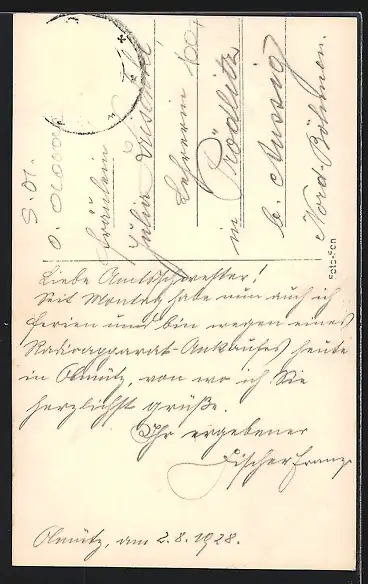 Fräulein
Julia
Lehrerin
in Prödlitz
b. Aussig
Nord Böhmen.
Foto-Fon
Liebe Amtsschwester!
Seit Montag habe nun auch ich
Ferien und bin wegen eines
Radioapparat-Ankaufes heute
in Olmütz, von wo ich Sie
herzlichst grüße.
Ihr ergebener
Fischer Franz
Olmütz, am 2.8.1928.